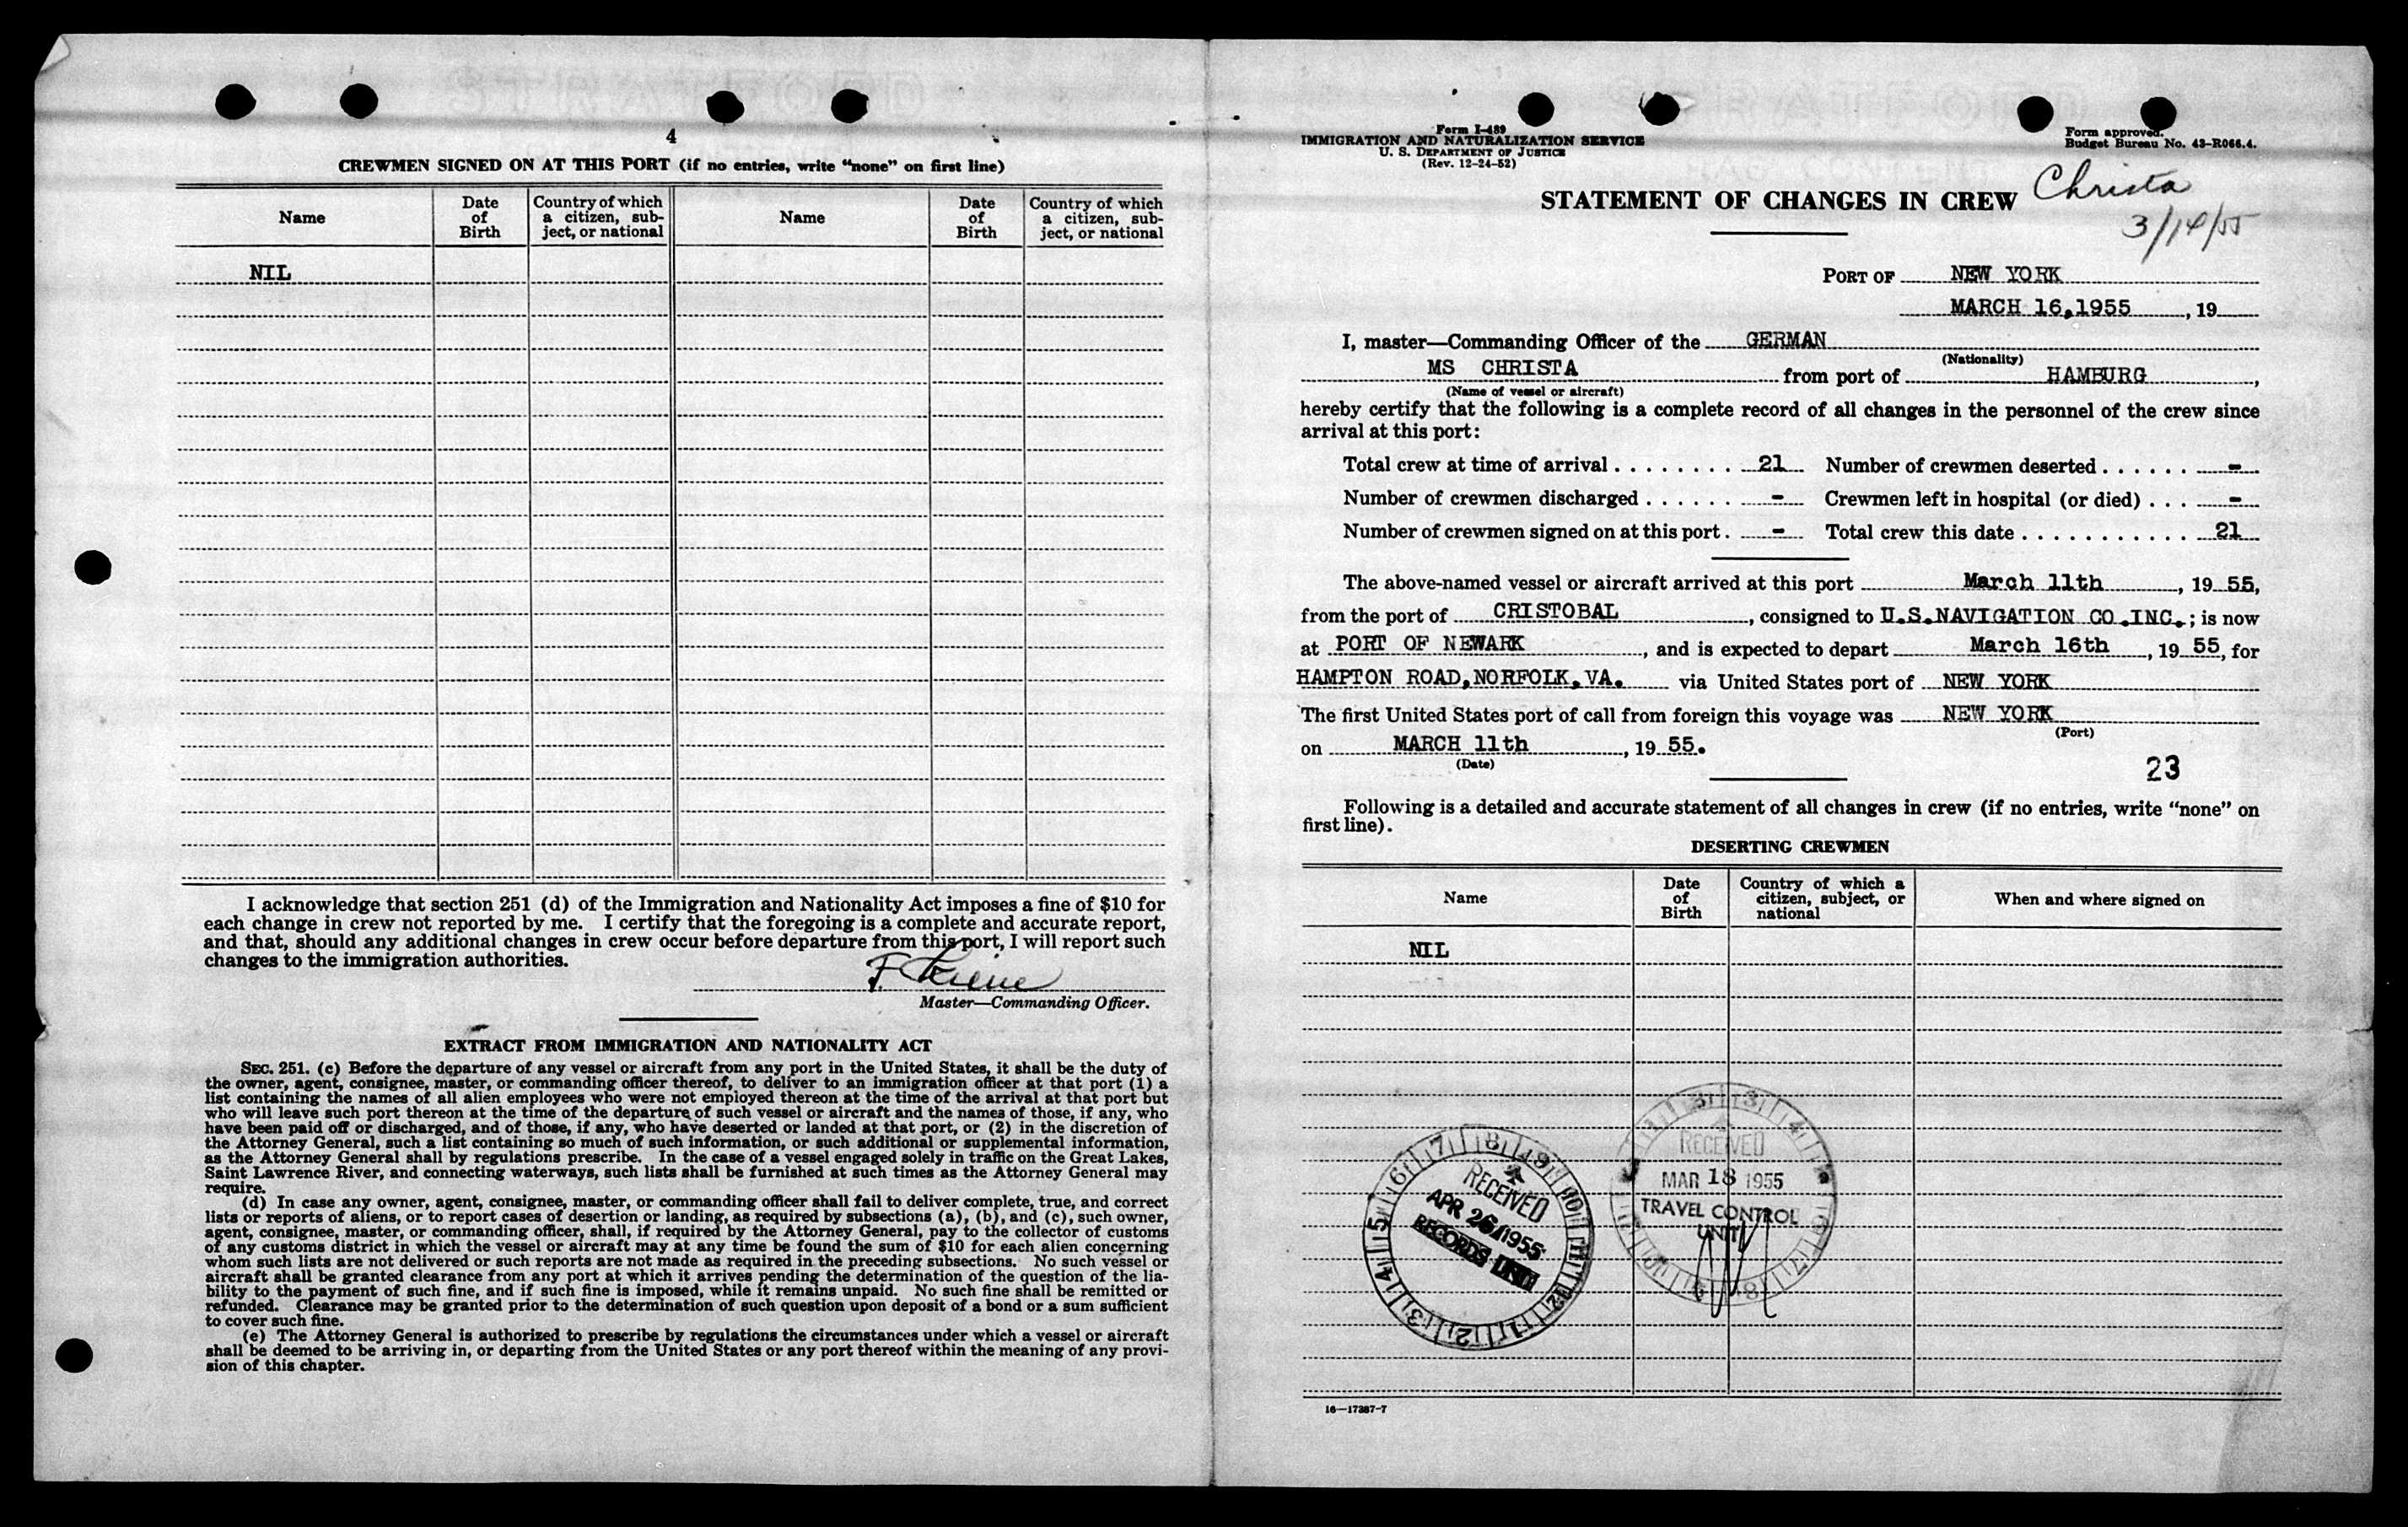 4
CREWMEN SIGNED ON AT THIS PORT (if no entries, write "none" on first line)
Name
Date of Birth
Country of which a citizen, sub- ject, or national
Name
Date of Birth
Country of which a citizen, sub- ject, or national
NIL
I acknowledge that section 251 (d) of the Immigration and Nationality Act imposes a fine of $10 for
each change in crew not reported by me. I certify that the foregoing is a complete and accurate report,
and that, should any additional changes in crew occur before departure from this port, I will report such
changes to the immigration authorities.
F.
Master—Commanding Officer.
EXTRACT FROM IMMIGRATION AND NATIONALITY ACT
SEC. 251. (c) Before the departure of any vessel or aircraft from any port in the United States, it shall be the duty of
the owner, agent, consignee, master, or commanding officer thereof, to deliver to an immigration officer at that port (1) a
list containing the names of all alien employees who were not employed thereon at the time of the arrival at that port but
who will leave such port thereon at the time of the departure of such vessel or aircraft and the names of those, if any, who
have been paid off or discharged, and of those, if any, who have deserted or landed at that port, or (2) in the discretion of
the Attorney General, such a list containing so much of such information, or such additional or supplemental information,
as the Attorney General shall by regulations prescribe. In the case of a vessel engaged solely in traffic on the Great Lakes,
Saint Lawrence River, and connecting waterways, such lists shall be furnished at such times as the Attorney General may
require.
(d) In case any owner, agent, consignee, master, or commanding officer shall fail to deliver complete, true, and correct
lists or reports of aliens, or to report cases of desertion or landing, as required by subsections (a), (b), and (c), such owner,
agent, consignee, master, or commanding officer, shall, if required by the Attorney General, pay to the collector of customs
of any customs district in which the vessel or aircraft may at any time be found the sum of $10 for each alien concerning
whom such lists are not delivered or such reports are not made as required in the preceding subsections. No such vessel or
aircraft shall be granted clearance from any port at which it arrives pending the determination of the question of the lia-
bility to the payment of such fine, and if such fine is imposed, while it remains unpaid. No such fine shall be remitted or
refunded. Clearance may be granted prior to the determination of such question upon deposit of a bond or a sum sufficient
to cover such fine.
(e) The Attorney General is authorized to prescribe by regulations the circumstances under which a vessel or aircraft
shall be deemed to be arriving in, or departing from the United States or any port thereof within the meaning of any provi-
sion of this chapter.
Form I-489
IMMIGRATION AND NATURALIZATION SERVICE
U. S. DEPARTMENT OF JUSTICE
(Rev. 12-24-52)
Form approved.
Budget Bureau No. 43-R066.4.
STATEMENT OF CHANGES IN CREW
Christa
3/14/55
PORT OF NEW YORK
MARCH 16,1955, 19
I, master—Commanding Officer of the GERMAN
(Nationality)
MS CHRISTA from port of HAMBURG,
(Name of vessel or aircraft)
hereby certify that the following is a complete record of all changes in the personnel of the crew since
arrival at this port:
Total crew at time of arrival . . . . . . . . 21 Number of crewmen deserted . . . . . . -
Number of crewmen discharged . . . . . . - Crewmen left in hospital (or died) . . . -
Number of crewmen signed on at this port . - Total crew this date . . . . . . . . . . . 21
The above-named vessel or aircraft arrived at this port March 11th, 19 55,
from the port of CRISTOBAL, consigned to U.S.NAVIGATION CO.INC.; is now
at PORT OF NEWARK, and is expected to depart March 16th, 19 55, for
HAMPTON ROAD,NORFOLK,VA. via United States port of NEW YORK
The first United States port of call from foreign this voyage was NEW YORK
(Port)
on MARCH 11th, 19 55.
(Date)
23
Following is a detailed and accurate statement of all changes in crew (if no entries, write "none" on
first line).
DESERTING CREWMEN
Name
Date of Birth
Country of which a citizen, subject, or national
When and where signed on
NIL
RECEIVED
APR 26 1955
RECORDS UNIT
RECEIVED
MAR 18 1955
TRAVEL CONTROL
UNIT
16—17387-7